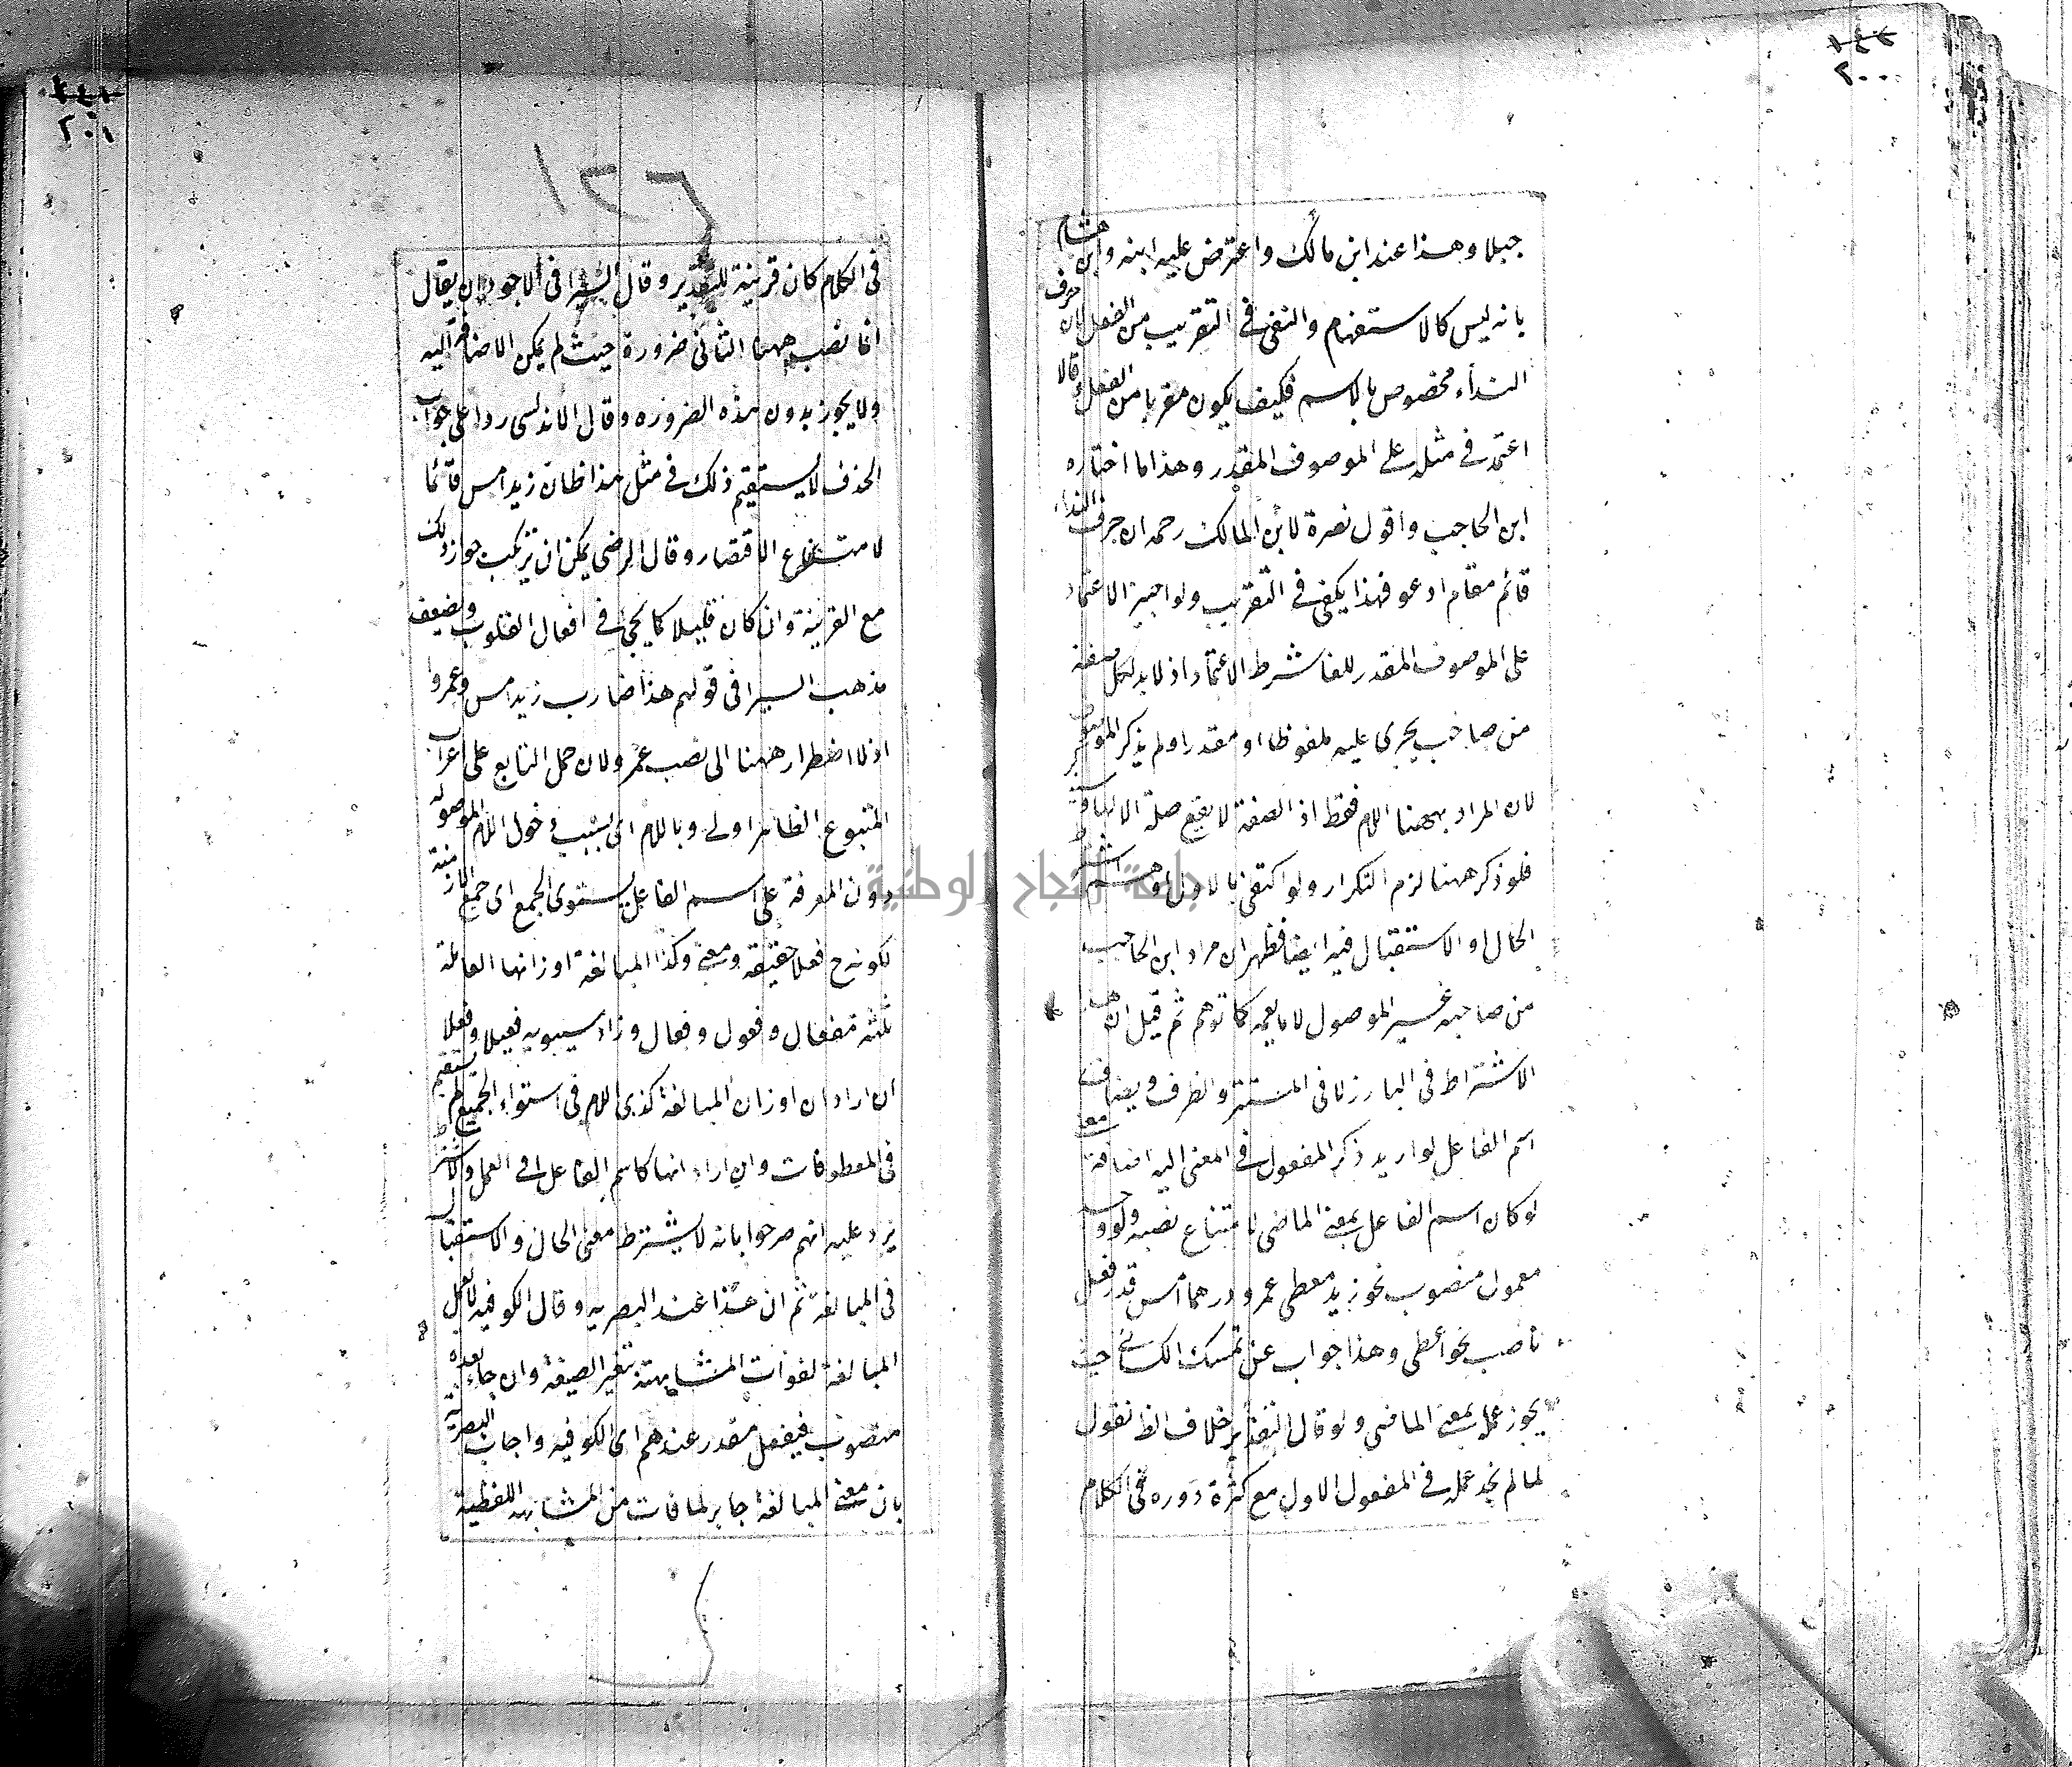 ٢٠٠
جبلا وهذا عند ابن مالك واعترض عليه ابنه وابن هشام
بانه ليس كالاستفهام والنفى فى التقريب من الفعل لان حرف
النداء مخصوص بالاسم فكيف يكون مقربا من الفعل وقالا
اعتمد فى مثله على الموصوف المقدر وهذا ما اختاره
ابن الحاجب واقول نصرة لابن المالك رحمه ان حرف النداء
قائم مقام ادعو فهذا يكفى فى التقريب ولو اجيز الاعتماد
على الموصوف المقدر للغا شرط الاعتماد اذ لابد لكل صفة
من صاحب يجرى عليه ملفوظا او مقدرا ولم يذكر الموصول
لان المراد بههنا اللام فقط اذ الصفة لا يقع صلة الا لها
فلو ذكر ههنا لزم التكرار ولو اكتفى بالاول اوهم اشتراط
الحال او الاستقبال فيه ايضا فظهر ان مراد ابن الحاجب
من صاحبه غير الموصول لا ما يعمه كما توهم ثم قيل ان هذا
الاشتراط فى البارز لا فى المستتر والظرف ويضاف
اسم الفاعل لو اريد ذكر المفعول فى المعنى اليه اضافة معنوية
لو كان اسم الفاعل بمعنى الماضى لامتناع نصبه ولو وجب
معمول منصوب نحو زيد معطى عمرو درهما امس قدر فعل
ناصب نحو اعطى وهذا جواب عن تمسك الكسائى حيث
يجوز عمله بمعنى الماضى ولو قال التقدير خلاف الظ نقول
لما لم نجد عمله فى المفعول الاول مع كثرة دوره فى الكلام
٢٠١
فى الكلام كان قرينة للتقدير وقال السيرافى الاجود ان يقال
انما نصب ههنا الثانى ضرورة حيث لم يكن الاضافة اليه
ولا يجوز بدون هذه الضروره وقال الاندلسى ردا على جواب
الحذف لا يستقيم ذلك فى مثل هذا ظان زيد امس قائما
لامتناع الاقتصار وقال الرضى يمكن ان يرتكب جواز ذلك
مع القرينة وان كان قليلا كما يجئ فى افعال القلوب ويضعف
مذهب السيرافى قولهم هذا ضارب زيد امس وعمروا
اذ لا اضطرار ههنا الى نصب عمرو لان حمل التابع على اعراب
المتبوع الظاهر اولى وباللام اى بسبب دخول اللام الموصوله
دون المعرفة على اسم الفاعل يستوى الجمع اى جميع الازمنة
لكونه ح فعلا حقيقة ومعنى وكذا المبالغة اوزانها العاملة
ثلثه مفعال وفعول وفعال وزاد سيبويه فعيلا وفعلا
ان اراد ان اوزان المبالغة كذى اللام فى استواء الجميع لم يستقيم
فى المعطوفات وان اراد انها كاسم الفاعل فى العمل والاشتراط
يرد عليه انهم صرحوا بانه لا يشترط معنى الحال والاستقبال
فى المبالغة ثم ان هذا عند البصريه وقال الكوفيه لا يعمل
المبالغة لفوات المشابهة بتغير الصيغة وان جاء بعده
منصوب فبفعل مقدر عندهم اى الكوفيه واجاب البصريه
بان معنى المبالغة جابر لما فات من المشابهه اللفظية
جامعة النجاح الوطنية